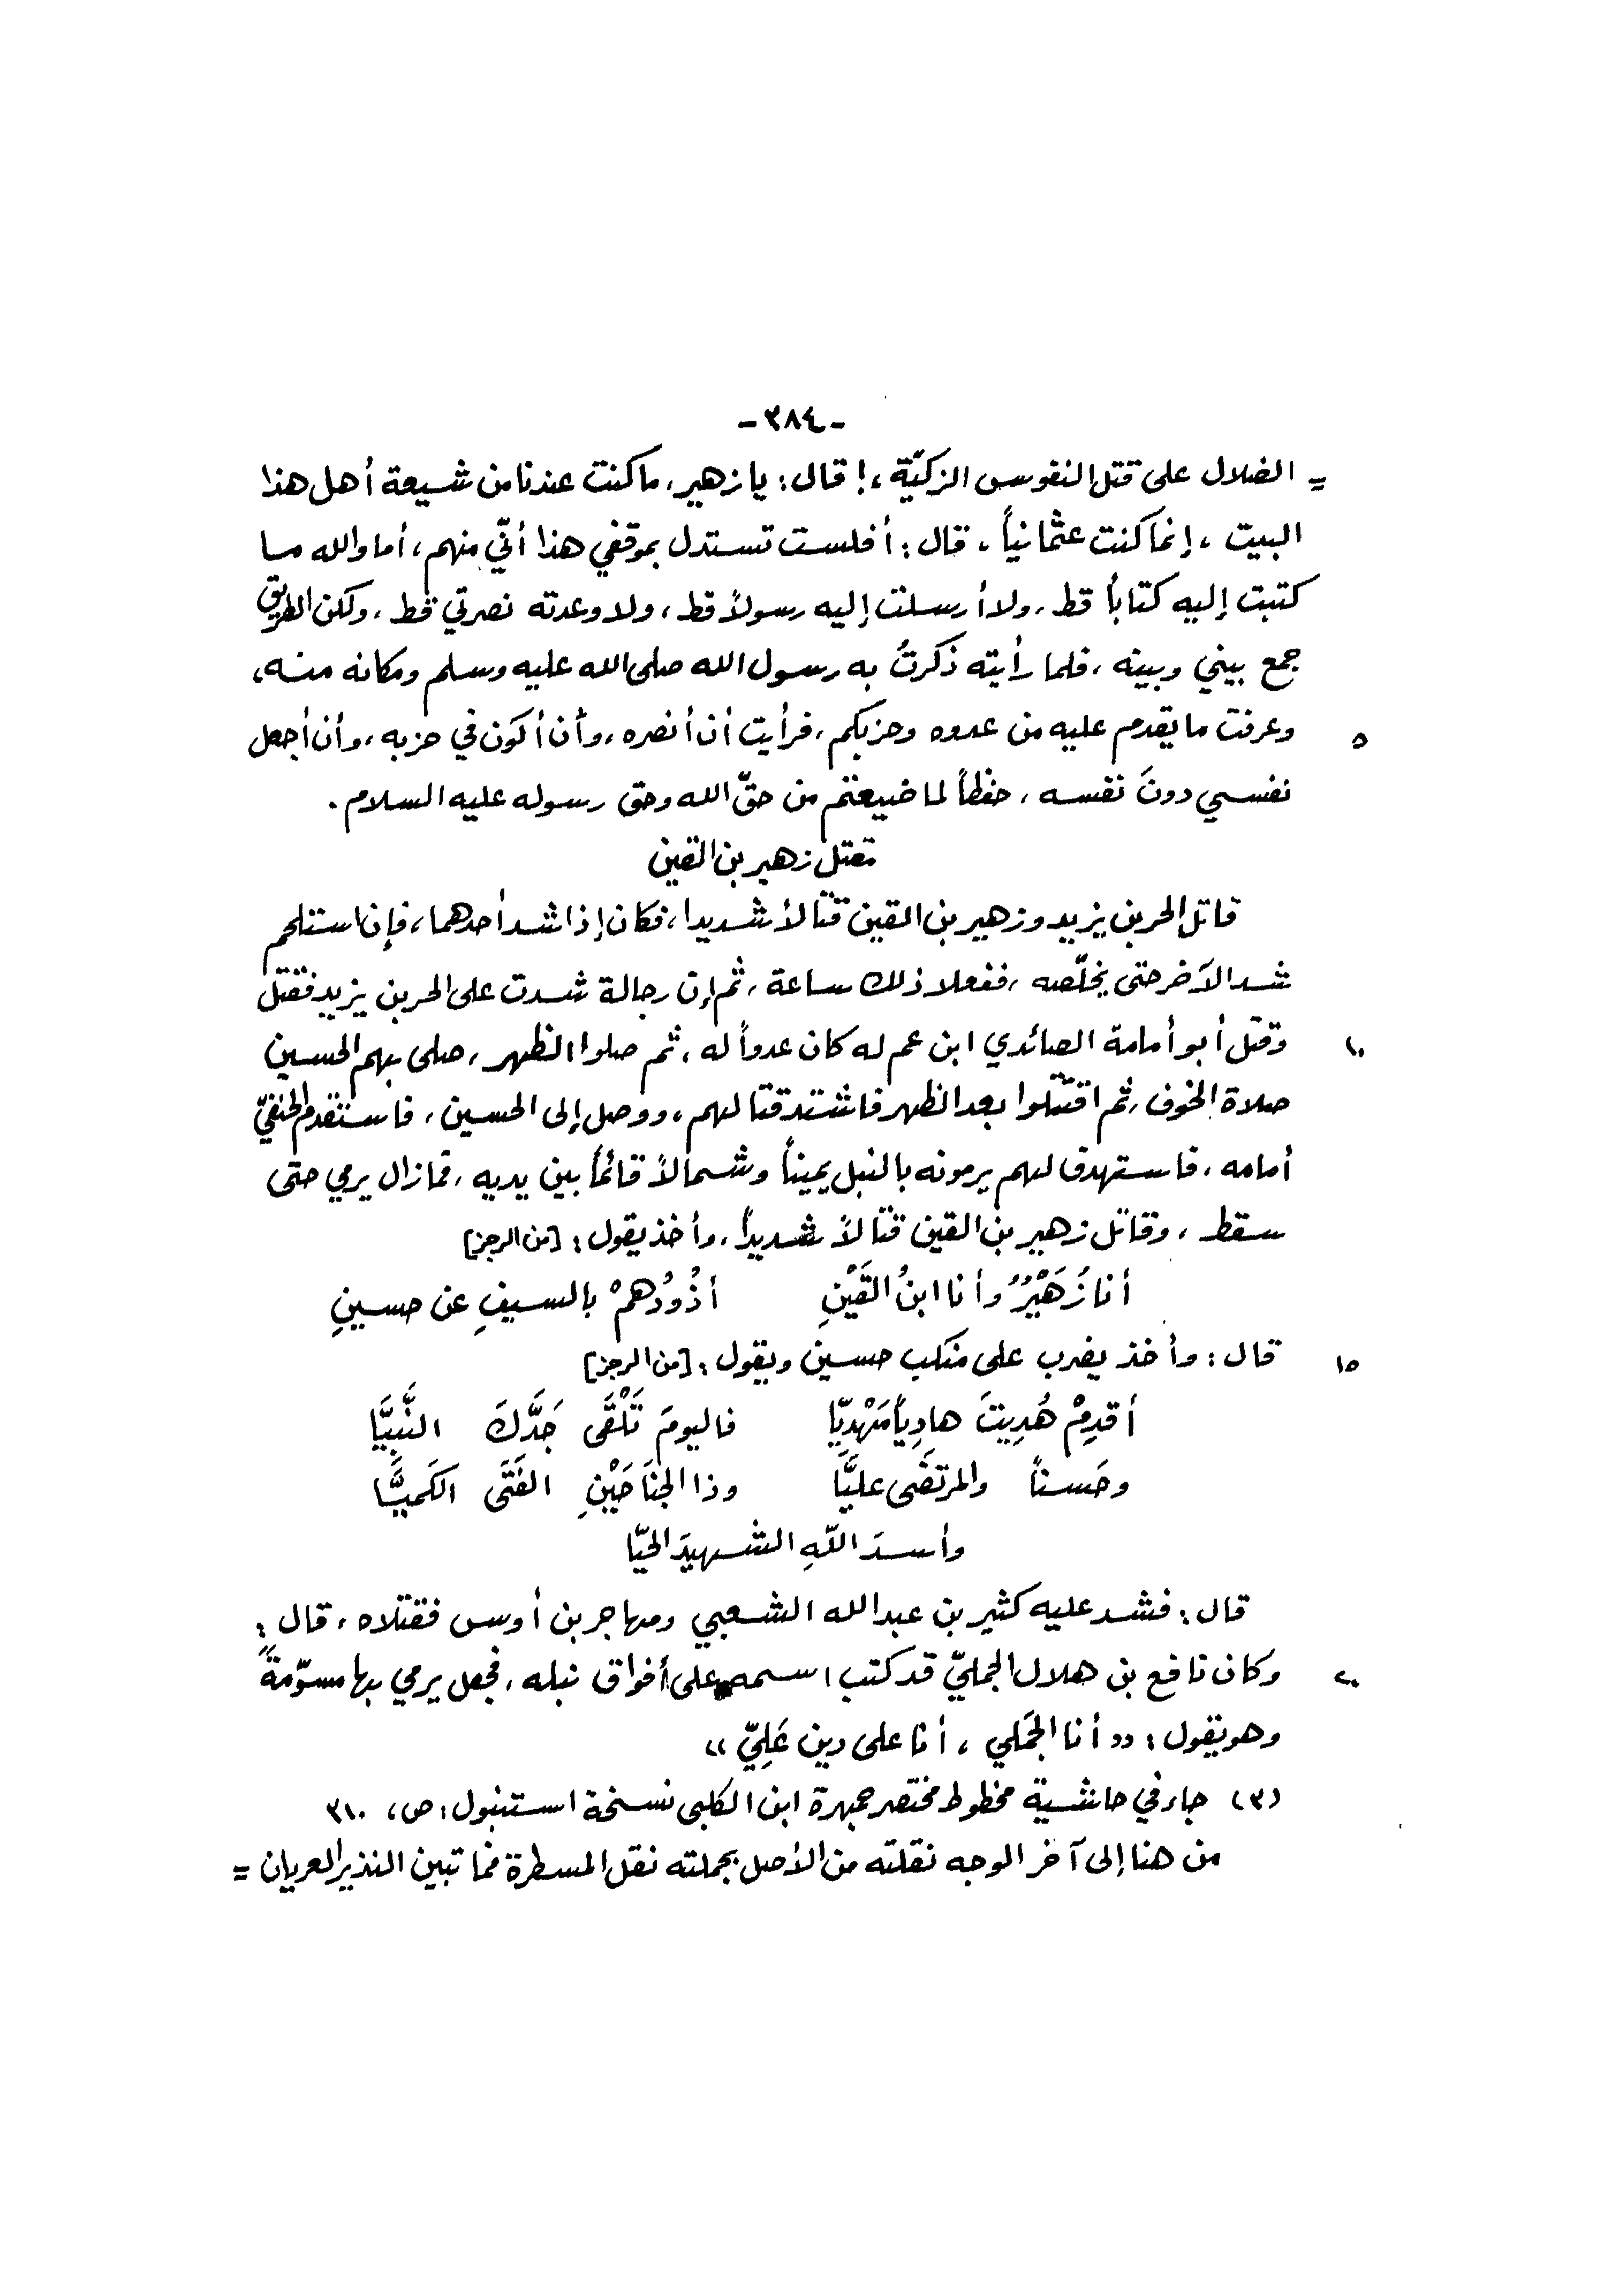 -٣٨٤-
= الضلال على قتل النفوس الزكيّة،! قال: يا زهير، ما كنت عندنا من شيعة أهل هذا
البيت، إنما كنت عثمانياً، قال: أفلست تستدل بموقفي هذا أنّي منهم، أما والله ما
كتبت إليه كتاباً قط، ولا أرسلت إليه رسولاً قط، ولا وعدته نصرتي قط، ولكن الطريق
جمع بيني وبينه، فلما رأيته ذكرتُ به رسول الله صلى الله عليه وسلم ومكانه منه،
٥ وعرفت ما يقدم عليه من عدوه وحزبكم، فرأيت أن أنصره، وأن أكون في حزبه، وأن أجعل
نفسي دونَ نفسه، حفظاً لما ضيعتم من حقّ الله وحق رسوله عليه السلام.
مقتل زهير بن القين
قاتل الحر بن يزيد وزهير بن القين قتالاً شديدا، فكان إذا شد أحدهما، فإن استلحم
شد الآخر حتى يخلّصه، ففعلا ذلك ساعة، ثم إن رجالة شدت على الحر بن يزيد فقتل
١٠ وقتل أبو أمامة الصائدي ابن عم له كان عدواً له، ثم صلوا الظهر، صلى بهم الحسين
صلاة الخوف، ثم اقتتلوا بعد الظهر فاشتد قتالهم، ووصل إلى الحسين، فاستقدم الحنفيّ
أمامه، فاستهدف لهم يرمونه بالنبل يميناً وشمالاً قائماً بين يديه، فما زال يرمي حتى
سقط، وقاتل زهير بن القين قتالاً شديداً، وأخذ يقول: [من الرجز]
أنا زُهَيْرٌ وأنا ابنُ القَيْنِ أذُودُهمْ بالسيفِ عن حسينِ
١٥ قال: وأخذ يضرب على منكب حسين ويقول: [من الرجز]
أقدِمْ هُدِيتَ هادِياً مَهْدِيّا فاليومَ تَلْقَى جَدَّكَ النَّبِيَّا
وحَسناً والمرتضَى عليَّا وذا الجنَاحَيْنِ الفَتَى الكَمِيَّا
وأسدَ اللّهِ الشهيدَ الحيّا
قال: فشد عليه كثير بن عبد الله الشعبي ومهاجر بن أوس فقتلاه، قال:
٢٠ وكان نافع بن هلال الجمليّ قد كتب اسمه على أفواق نبله، فجعل يرمي بها مسوّمةً
وهو يقول: «أنا الجَملي، أنا على دين عَلِيّ»
(٣) جاء في حاشية مخطوط مختصر جمهرة ابن الكلبي نسخة استنبول: ص، ٣١٠
من هنا إلى آخر الوجه نقلته من الأصل بجملته نقل المسطرة فما تبين النذير العريان =